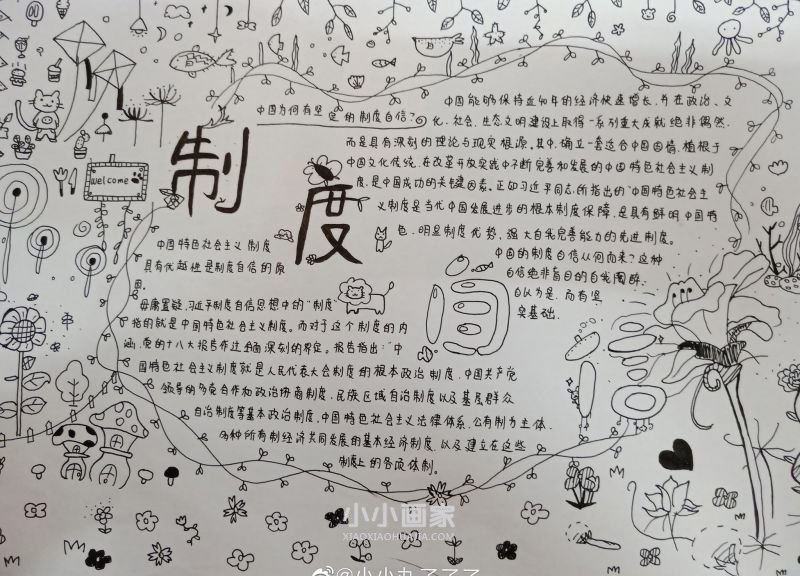 制度自信
welcome
中国为何有坚定的制度自信?
中国能够保持近40年的经济快速增长,并在政治、文
化、社会、生态文明建设上取得一系列重大成就绝非偶然,
而是具有深刻的理论与现实根源。其中,确立一套适合中国国情,植根于
中国文化传统,在改革开放实践中不断完善和发展的中国特色社会主义制
度,是中国成功的关键因素。正如习近平同志所指出的"中国特色社会主
义制度是当代中国发展进步的根本制度保障,是具有鲜明中国特
色,明显制度优势,强大自我完善能力的先进制度。
中国的制度自信从何而来?这种
自信绝非盲目的自我陶醉,
自以为是,而有坚
实基础.
中国特色社会主义制度
具有优越性是制度自信的原
毋庸置疑,习近平制度自信思想中的"制度"
指的就是中国特色社会主义制度。而对于这个制度的内
涵,党的十八大报告作过全面深刻的界定。报告指出:"中
国特色社会主义制度就是人民代表大会制度的根本政治制度,中国共产党
领导的多党合作和政治协商制度,民族区域自治制度以及基层群众
自治制度等基本政治制度,中国特色社会主义法律体系,公有制为主体.
多种所有制经济共同发展的基本经济制度,以及建立在这些
制度上的各项体制。
小小画家
XIAOXIAOHUAJIA.COM